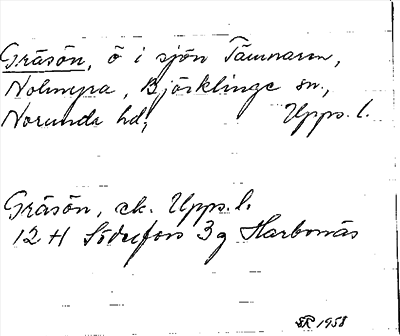 Gräsön, ö i sjön Tämnaren,
Nolmyra, Björklinge sn,
Norunda hd, Upps. l.
Gräsön, ek. Upps. l.
12 H Söderfors 3 g Harbonäs
1958